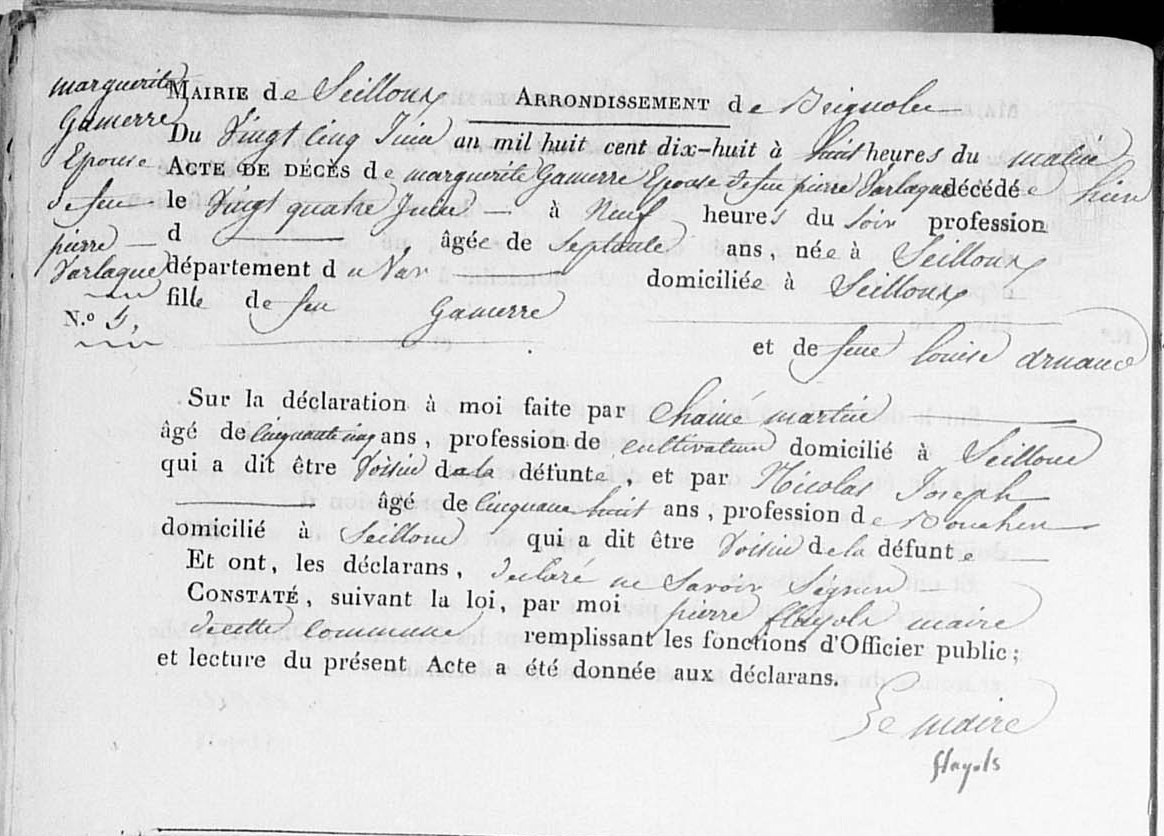 marguerite
Gamerre
Epouse
de feu
pierre
Varlaque
N.º 5,
MAIRIE de Seilloux ARRONDISSEMENT de Brignoles
Du Vingt Cinq Juin an mil huit cent dix-huit à huit heures du matin
ACTE DE DÉCÈS de marguerite Gamerre Epouse de feu pierre Varlaque décédée hier
le Vingt quatre Juin — à Neuf heures du Soir profession
d — âgée de Septante ans, née à Seilloux
département du Var domiciliée à Seilloux
fille de feu Gamerre
et de feue louise arnaud
Sur la déclaration à moi faite par Chaivé martin
âgé de Cinquante cinq ans, profession de cultivateur domicilié à Seilloux
qui a dit être Voisin de la défunte, et par Nicolas Joseph
— âgé de Cinquante huit ans, profession de Boucher
domicilié à Seilloux qui a dit être Voisin de la défunte
Et ont, les déclarans, declaré ne Savoir Signer
CONSTATÉ, suivant la loi, par moi pierre flayols maire
de cette Commune remplissant les fonctions d'Officier public;
et lecture du présent Acte a été donnée aux déclarans.
Le maire
flayols